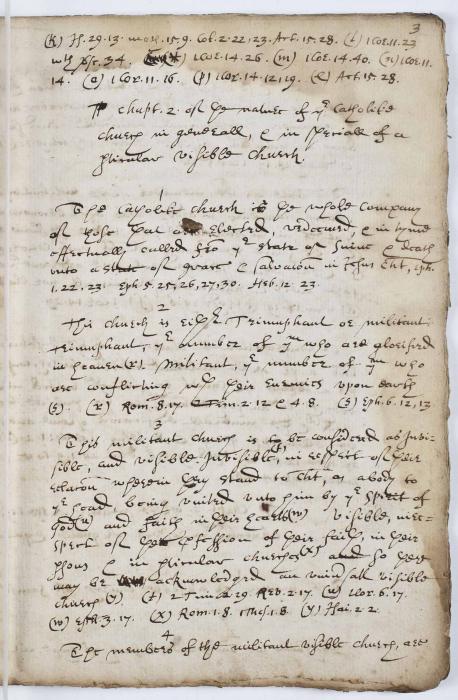 3
(k) Is. 29.13. math. 15.9. Col. 2.22.23. Act. 15.28. (l) 1 Cor. 11.23
wth vse. 34. 1 Cor. 14.26. (m) 1 Cor. 14.40. (n) 1 Cor. 11.
14. (o) 1 Cor. 11.16. (p) 1 Cor. 14.12,19. (q) Act. 15.28.
chapt. 2. of the nature of ye Catholike
church in generall, & in speciall of a
pticular visible church.
1
The Catholike church is the whole company
of those that are elected, redeemed, & in tyme
effectually called fro ye state of sinne & death
vnto a state of grace & salvation in Jesus Cht, Eph.
1.22,23. Eph. 5.25,26,27,30. Heb. 12.23.
2
This church is eithr Triumphant or militant.
Triumphant, ye number of ym who are glorified
in heaven (r). Militant, ye number of ym who
are conflicting wth their enemies vpon earth
(s). (r) Rom. 8.17. 2 Tim. 2.12 & 4.8. (s) Eph. 6.12,13
3
This militant church is to be considered as Invi-
sible, and visible. Invisible (t), in respect of their
relation wherein they stand to Cht, as a body to
ye head being vnited vnto him by ye spirit of
god (u) and faith in their hearts (w) visible, in re-
spect of the pfession of their faith, in their
psons & in pticular churches (x) and so there
may be acknowledged an vniversall visible
church (y). (t) 2 Tim. 2.19. Rev. 2.17. (u) 1 Cor. 6.17.
(w) Eph. 3.17. (x) Rom. 1.8. 1 Thes. 1.8. (y) Isai. 2.2.
4
The members of the militant visible church, are